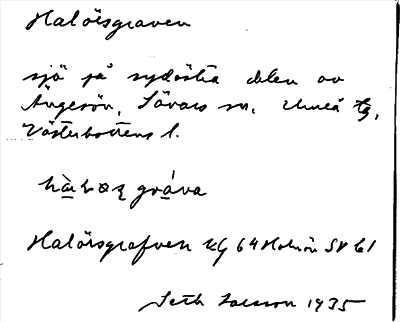 Halörsgraven
sjö på sydöstra delen av
Ängesön, Sävars sn. Umeå tg,
Västerbottens l.
gráva
Halörsgrafven KG 64 Holmön SV b1
Seth Larsson 1935